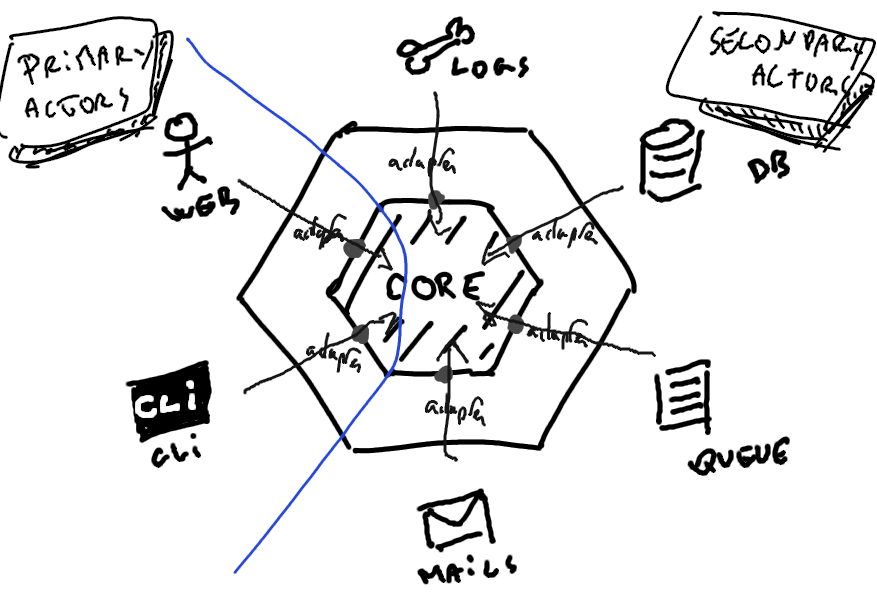 PRIMARY
ACTORS
LOGS
SECONDARY
ACTORS
WEB
DB
adapter
adapter
adapter
CORE
adapter
adapter
adapter
CLI
CLI
QUEUE
MAILS